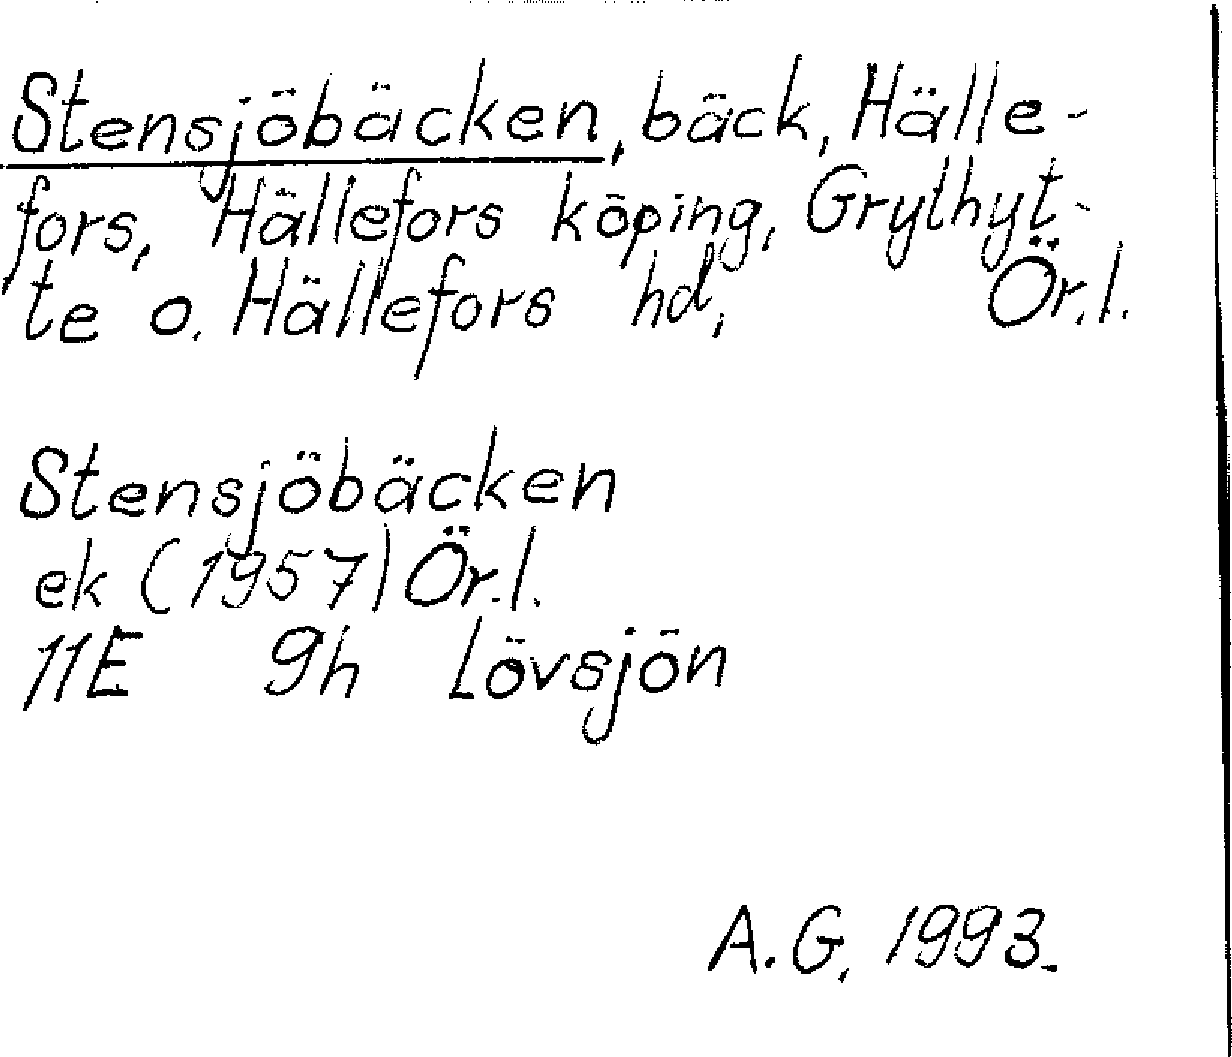 Stensjöbäcken, bäck, Hälle-
fors, Hällefors köping, Grythyt-
te o. Hällefors hd, Ör.l.
Stensjöbäcken
ek (1957) Ör.l.
11E 9h Lövsjön
A.G. 1993.